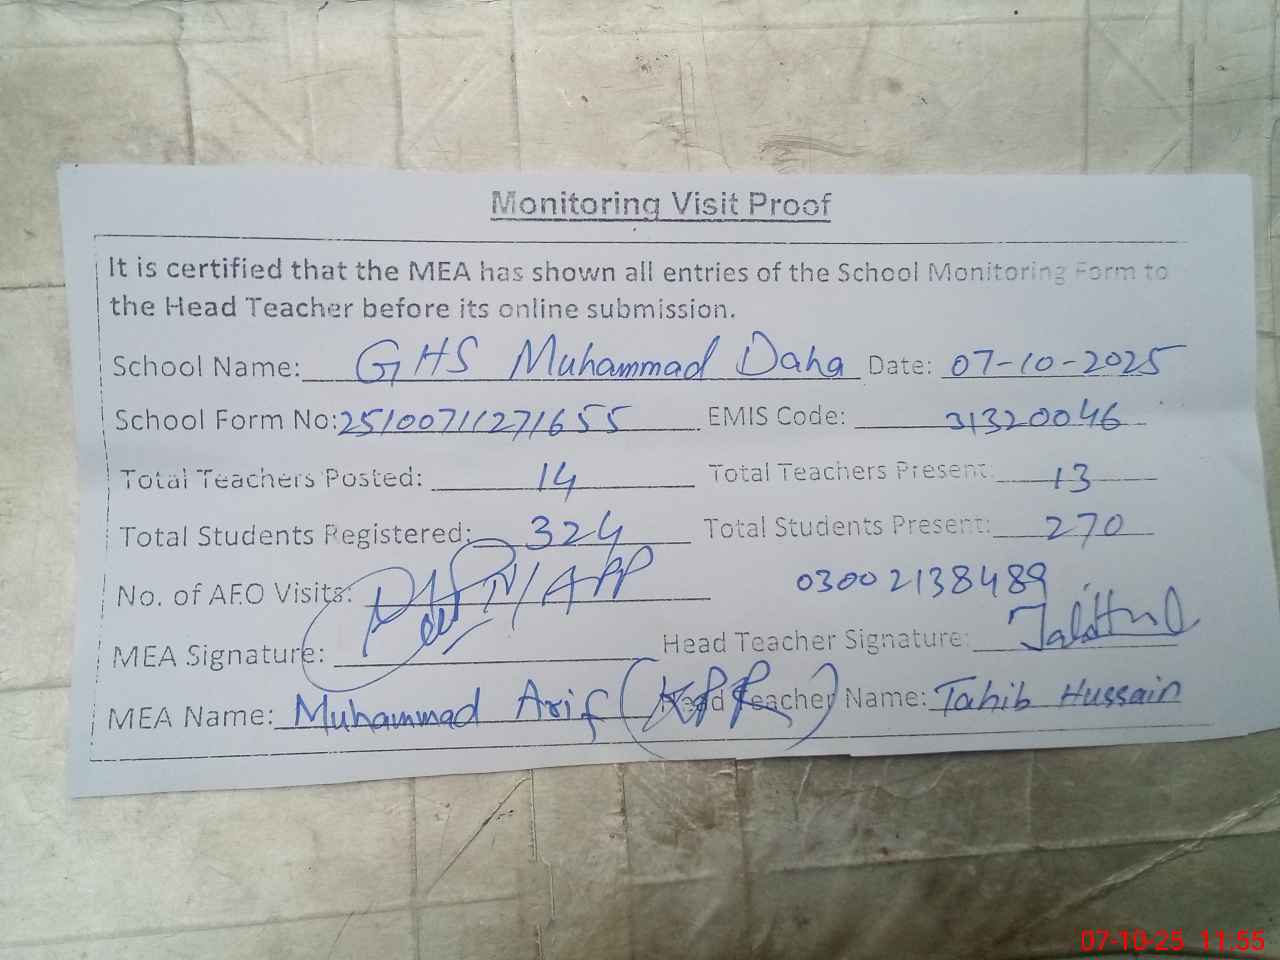 Monitoring Visit Proof
It is certified that the MEA has shown all entries of the School Monitoring Form to
the Head Teacher before its online submission.
School Name: GHS Muhammad Daha Date: 07-10-2025
School Form No: 25100711271655 EMIS Code: 31320046
Total Teachers Posted: 14 Total Teachers Present: 13
Total Students Registered: 324 Total Students Present: 270
No. of AEO Visits: N/APP 03002138489
MEA Signature: Head Teacher Signature:
MEA Name: Muhammad Arif (KPR) Head Teacher Name: Tahib Hussain
07-10-25 11:55